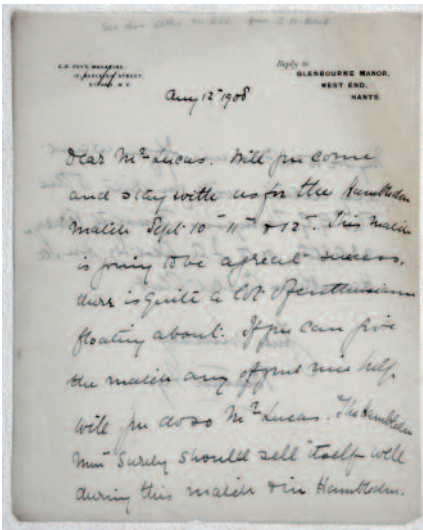 C.B. FRY'S MAGAZINE,
STRAND, W.C.
Reply to
GLENBOURNE MANOR,
WEST END,
HANTS.
Aug 12th 1908
Dear Mr Lucas. Will you come
and stay with us for the Hambledon
match Sept 10th 11th & 12th. This match
is going to be a great success,
there is quite a lot of enthusiasm
floating about. If you can give
the match any of your nice help
will you do so Mr Lucas. The Hambledon
Men surely should sell itself well
during this match & in Hambledon.